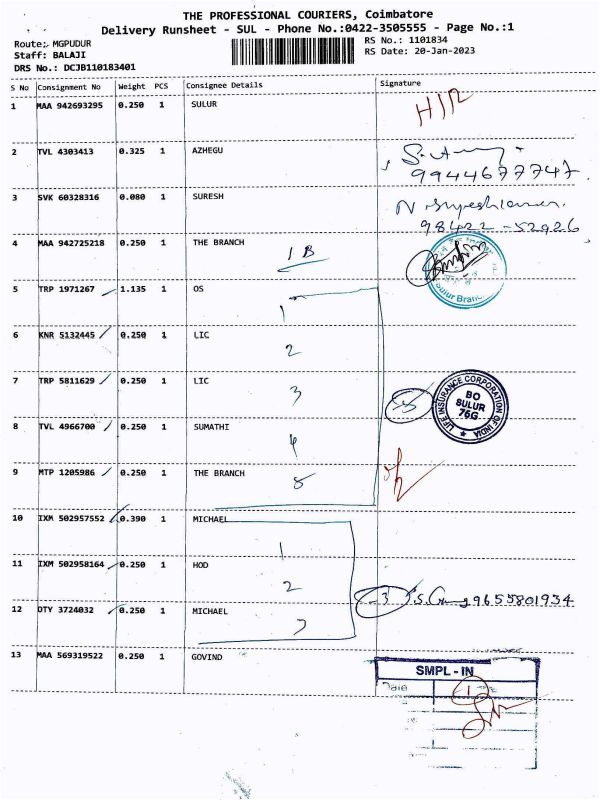 THE PROFESSIONAL COURIERS, Coimbatore
Delivery Runsheet - SUL - Phone No.:0422-3505555 - Page No.:1
Route:, MGPUDUR
RS No.: 1101834
Staff: BALAJI
RS Date: 20-Jan-2023
DRS No.: DCJB110183401
S No Consignment No Weight PCS Consignee Details Signature
1 MAA 942693295 0.250 1 SULUR
2 TVL 4303413 0.325 1 AZHEGU
9944677747
3 SVK 60328316 0.080 1 SURESH
98422-52926
4 MAA 942725218 0.250 1 THE BRANCH 1 B
Sulur Branch
5 TRP 1971267 1.135 1 OS 1
6 KNR 5132445 0.250 1 LIC 2
7 TRP 5811629 0.250 1 LIC 3
LIFE INSURANCE CORPORATION OF INDIA
BO
SULUR
76G
8 TVL 4966700 0.250 1 SUMATHI 4
9 MTP 1205986 0.250 1 THE BRANCH 5
10 IXM 502957552 0.390 1 MICHAEL 1
11 IXM 502958164 0.250 1 HOD 2
12 OTY 3724032 0.250 1 MICHAEL 3
3 9655801934
13 MAA 569319522 0.250 1 GOVIND
SMPL-IN
Date 1